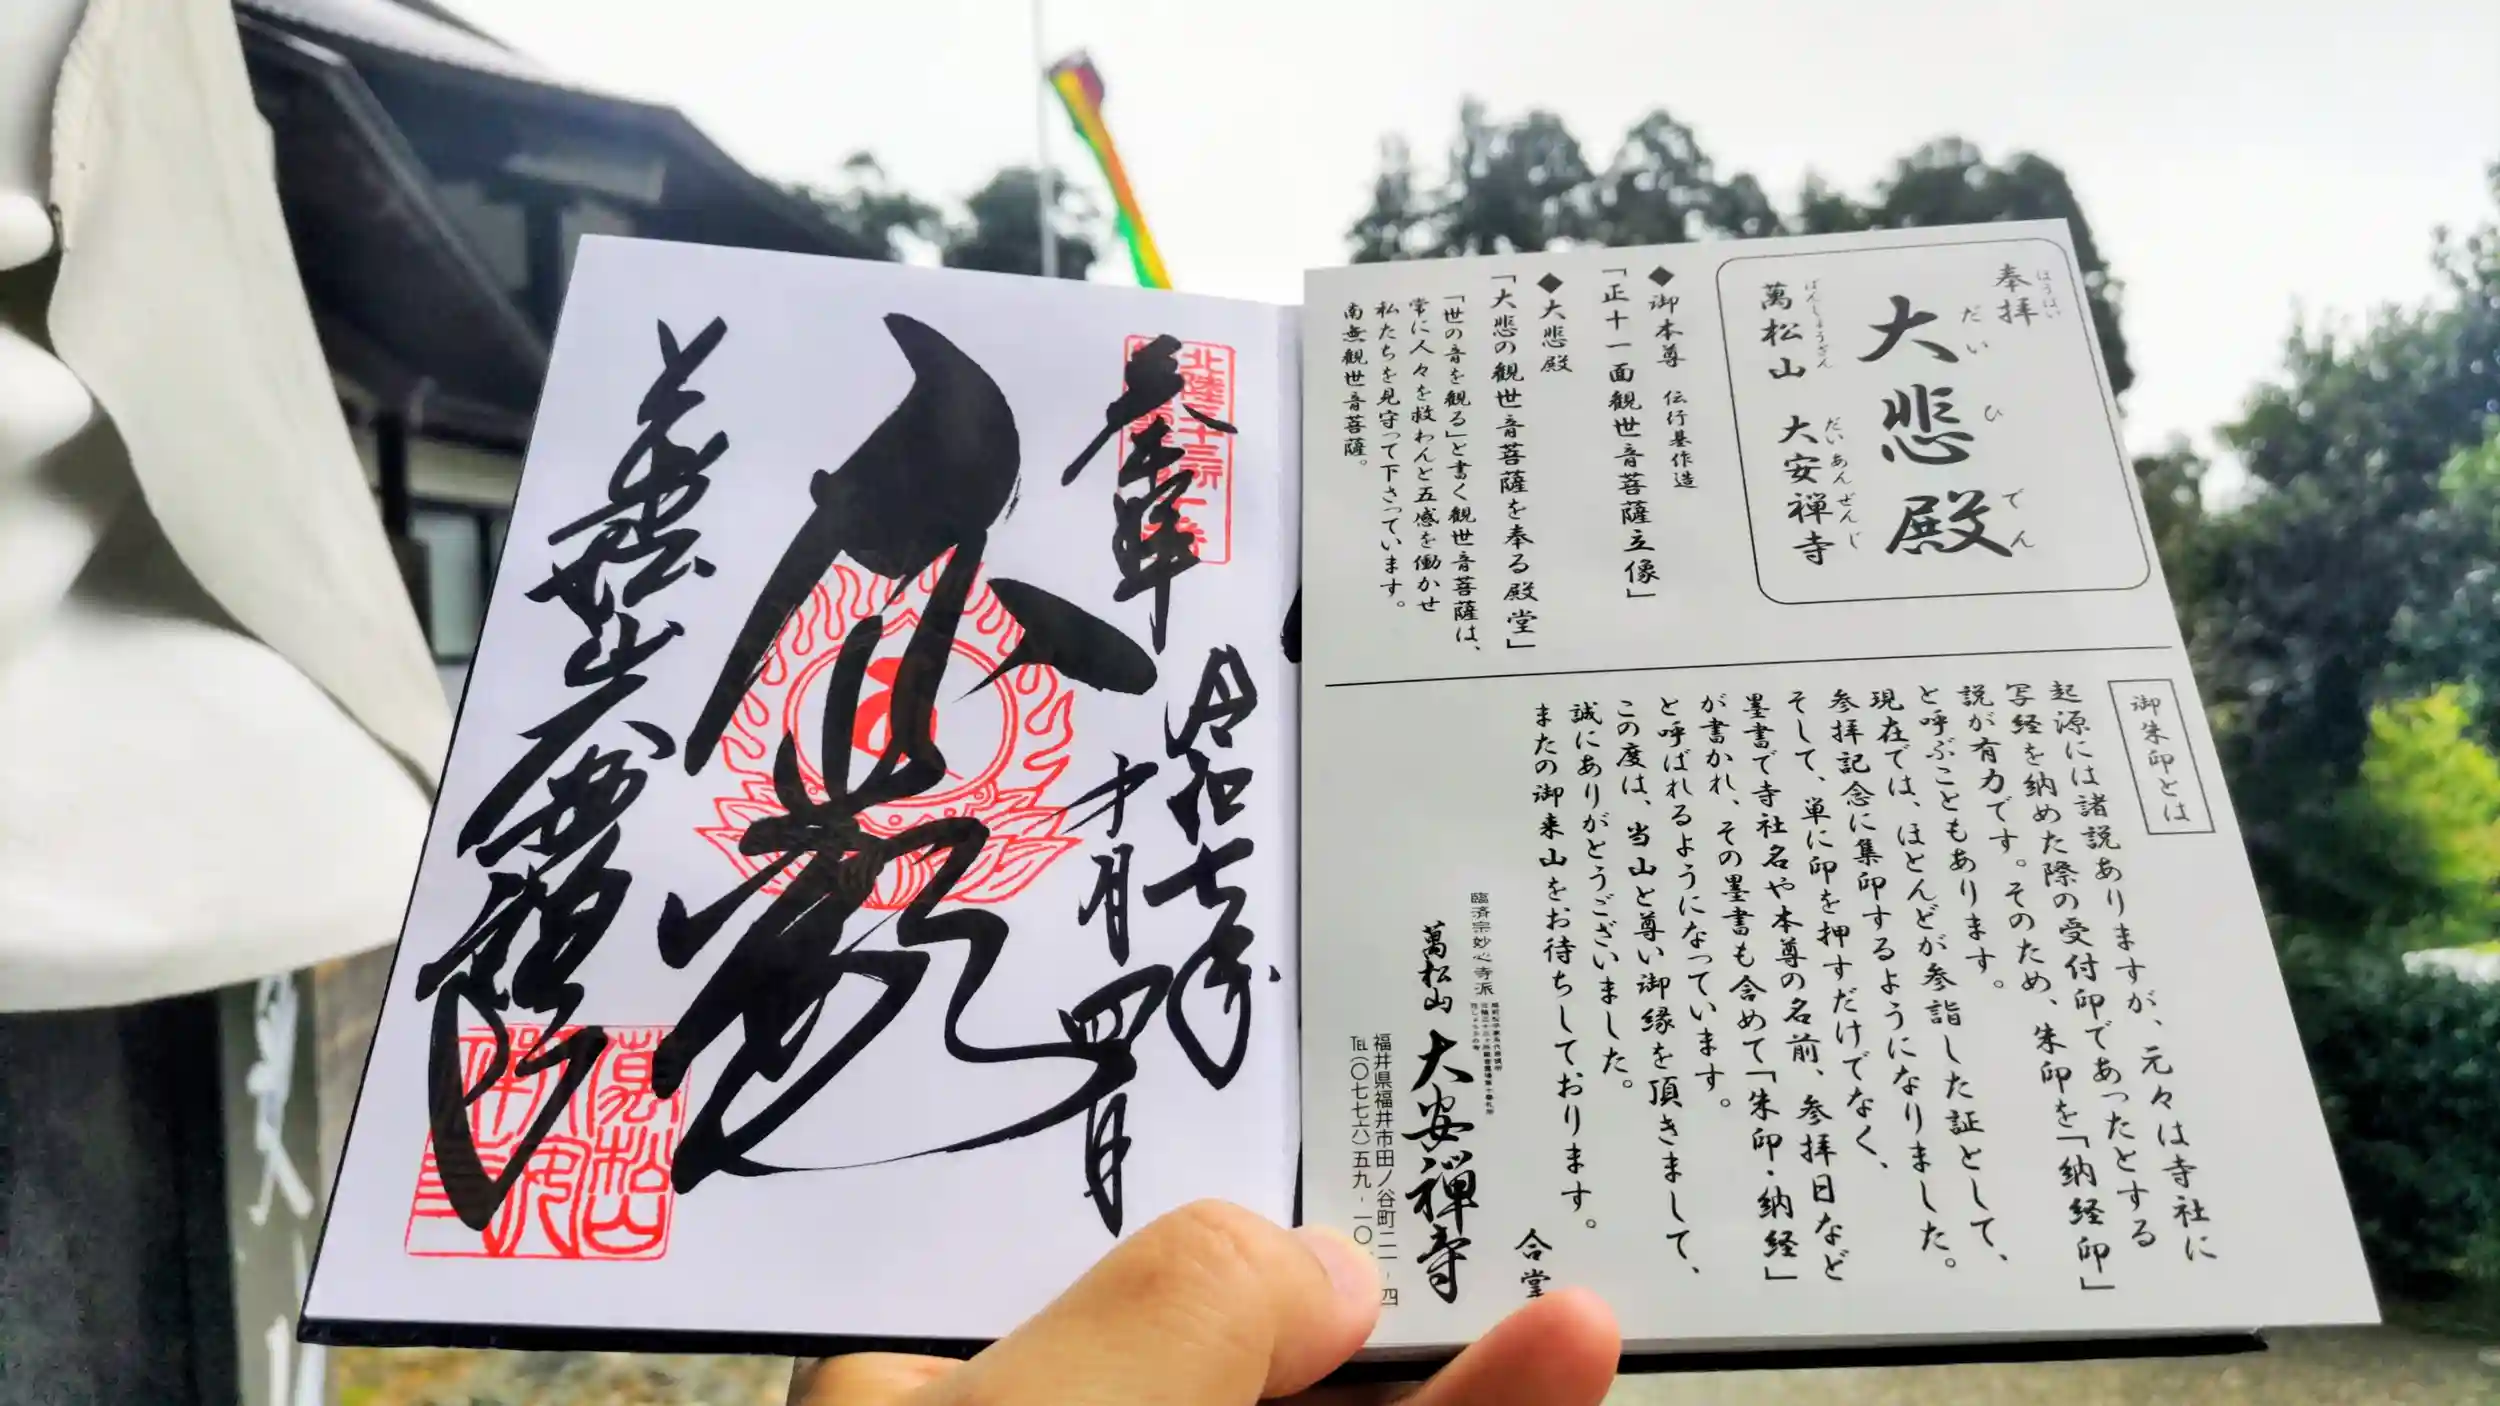 奉拝
ほうはい
大悲殿
だいひでん
萬松山 大安禅寺
ばんしょうざん だいあんぜんじ
◆御本尊 伝行基作造
「正十一面観世音菩薩立像」
◆大悲殿
「大悲の観世音菩薩を奉る殿堂」
「世の音を観る」と書く観世音菩薩は、
常に人々を救わんと五感を働かせ
私たちを見守って下さっています。
南無観世音菩薩。
御朱印とは
起源には諸説ありますが、元々は寺社に
写経を納めた際の受付印であったとする
説が有力です。そのため、朱印を「納経印」
と呼ぶこともあります。
現在では、ほとんどが参詣した証として、
参拝記念に集印するようになりました。
そして、単に印を押すだけでなく、
墨書で寺社名や本尊の名前、参拝日など
が書かれ、その墨書も含めて「朱印・納経」
と呼ばれるようになっています。
この度は、当山と尊い御縁を頂きまして、
誠にありがとうございました。
またの御来山をお待ちしております。
合掌
臨済宗妙心寺派
萬松山 大安禅寺
福井県福井市田ノ谷町二一-四
℡(〇七七六)五九-一〇
奉拝
北陸三十三所
令和七年
十月四日
大悲殿
萬松山大安禅寺
萬松山